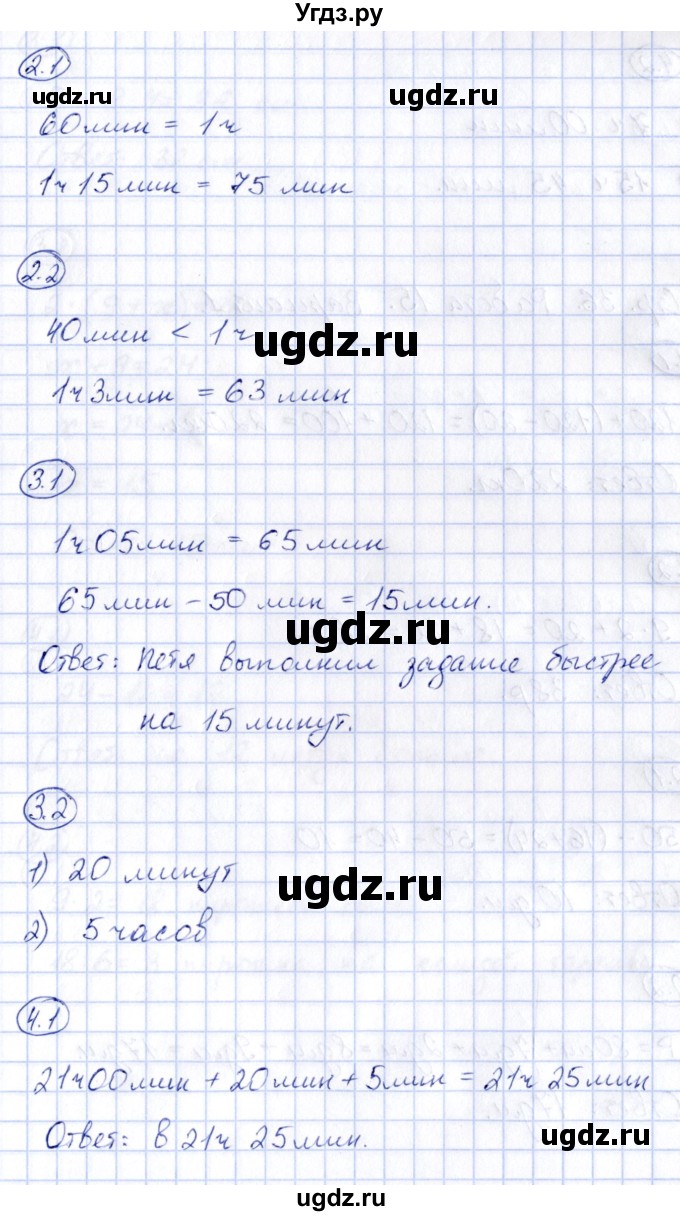 Угдз.ру
2.1
ugdz.ru ugdz.ru
60мин = 1ч
1ч 15мин = 75 мин
2.2
40мин < 1ч
ugdz.ru
1ч 3мин = 63 мин
3.1
1ч 05мин = 65мин
65мин - 50 мин = 15мин.
ugdz.ru
Ответ: Петя выполнил задание быстрее
на 15 минут.
3.2
1) 20 минут
ugdz.ru
2) 5 часов
4.1
21ч 00мин + 20мин + 5мин = 21ч 25мин
Ответ: в 21ч 25мин.
ugdz.ru
ugdz.ru